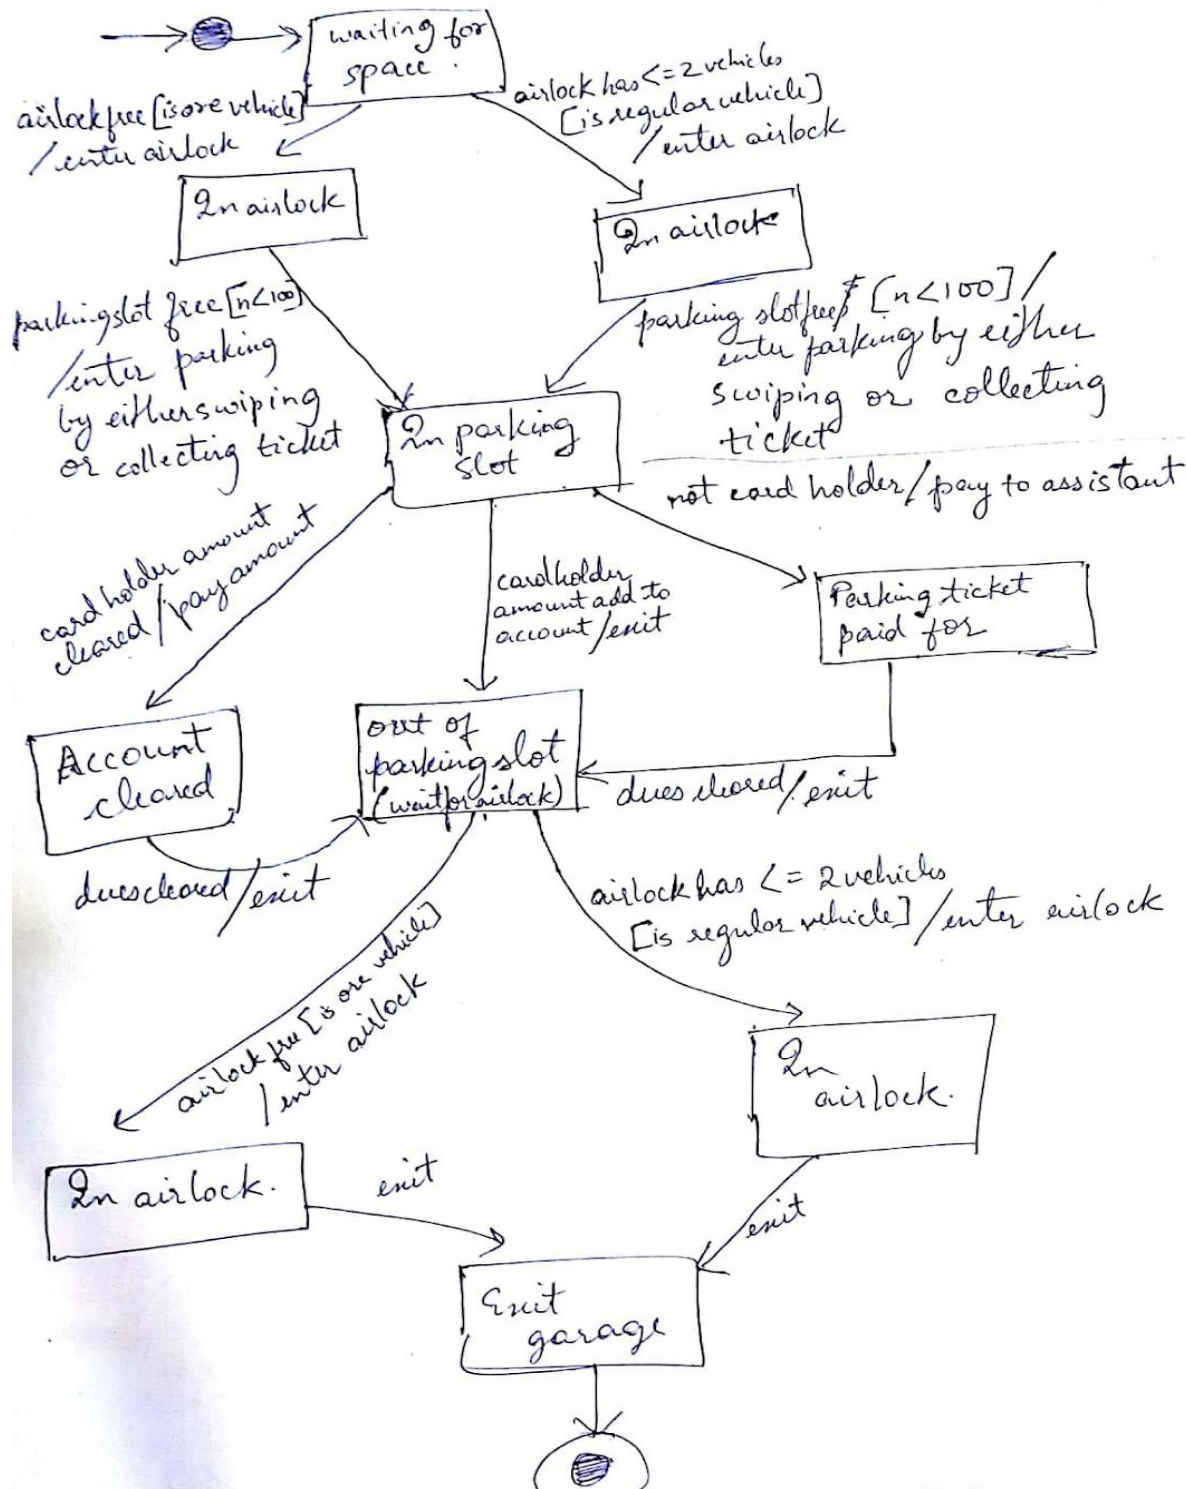 waiting for
space.
airlock free [is ore vehicle]
/enter airlock
airlock has <= 2 vehicles
[is regular vehicle]
/enter airlock
In airlock
In airlock
parking slot free [n<100]
/enter parking
by either swiping
or collecting ticket
parking slot free [n<100]/
enter parking by either
swiping or collecting
ticket
In parking
slot
not card holder/pay to assistant
card holder amount
cleared/pay amount
cardholder
amount add to
account/exit
Parking ticket
paid for
Account
cleared
out of
parking slot
(wait for airlock)
dues cleared/exit
dues cleared/exit
airlock has <= 2 vehicles
[is regular vehicle]/enter airlock
airlock free [is ore vehicle]
/enter airlock
In
airlock.
In airlock.
exit
exit
Exit
garage